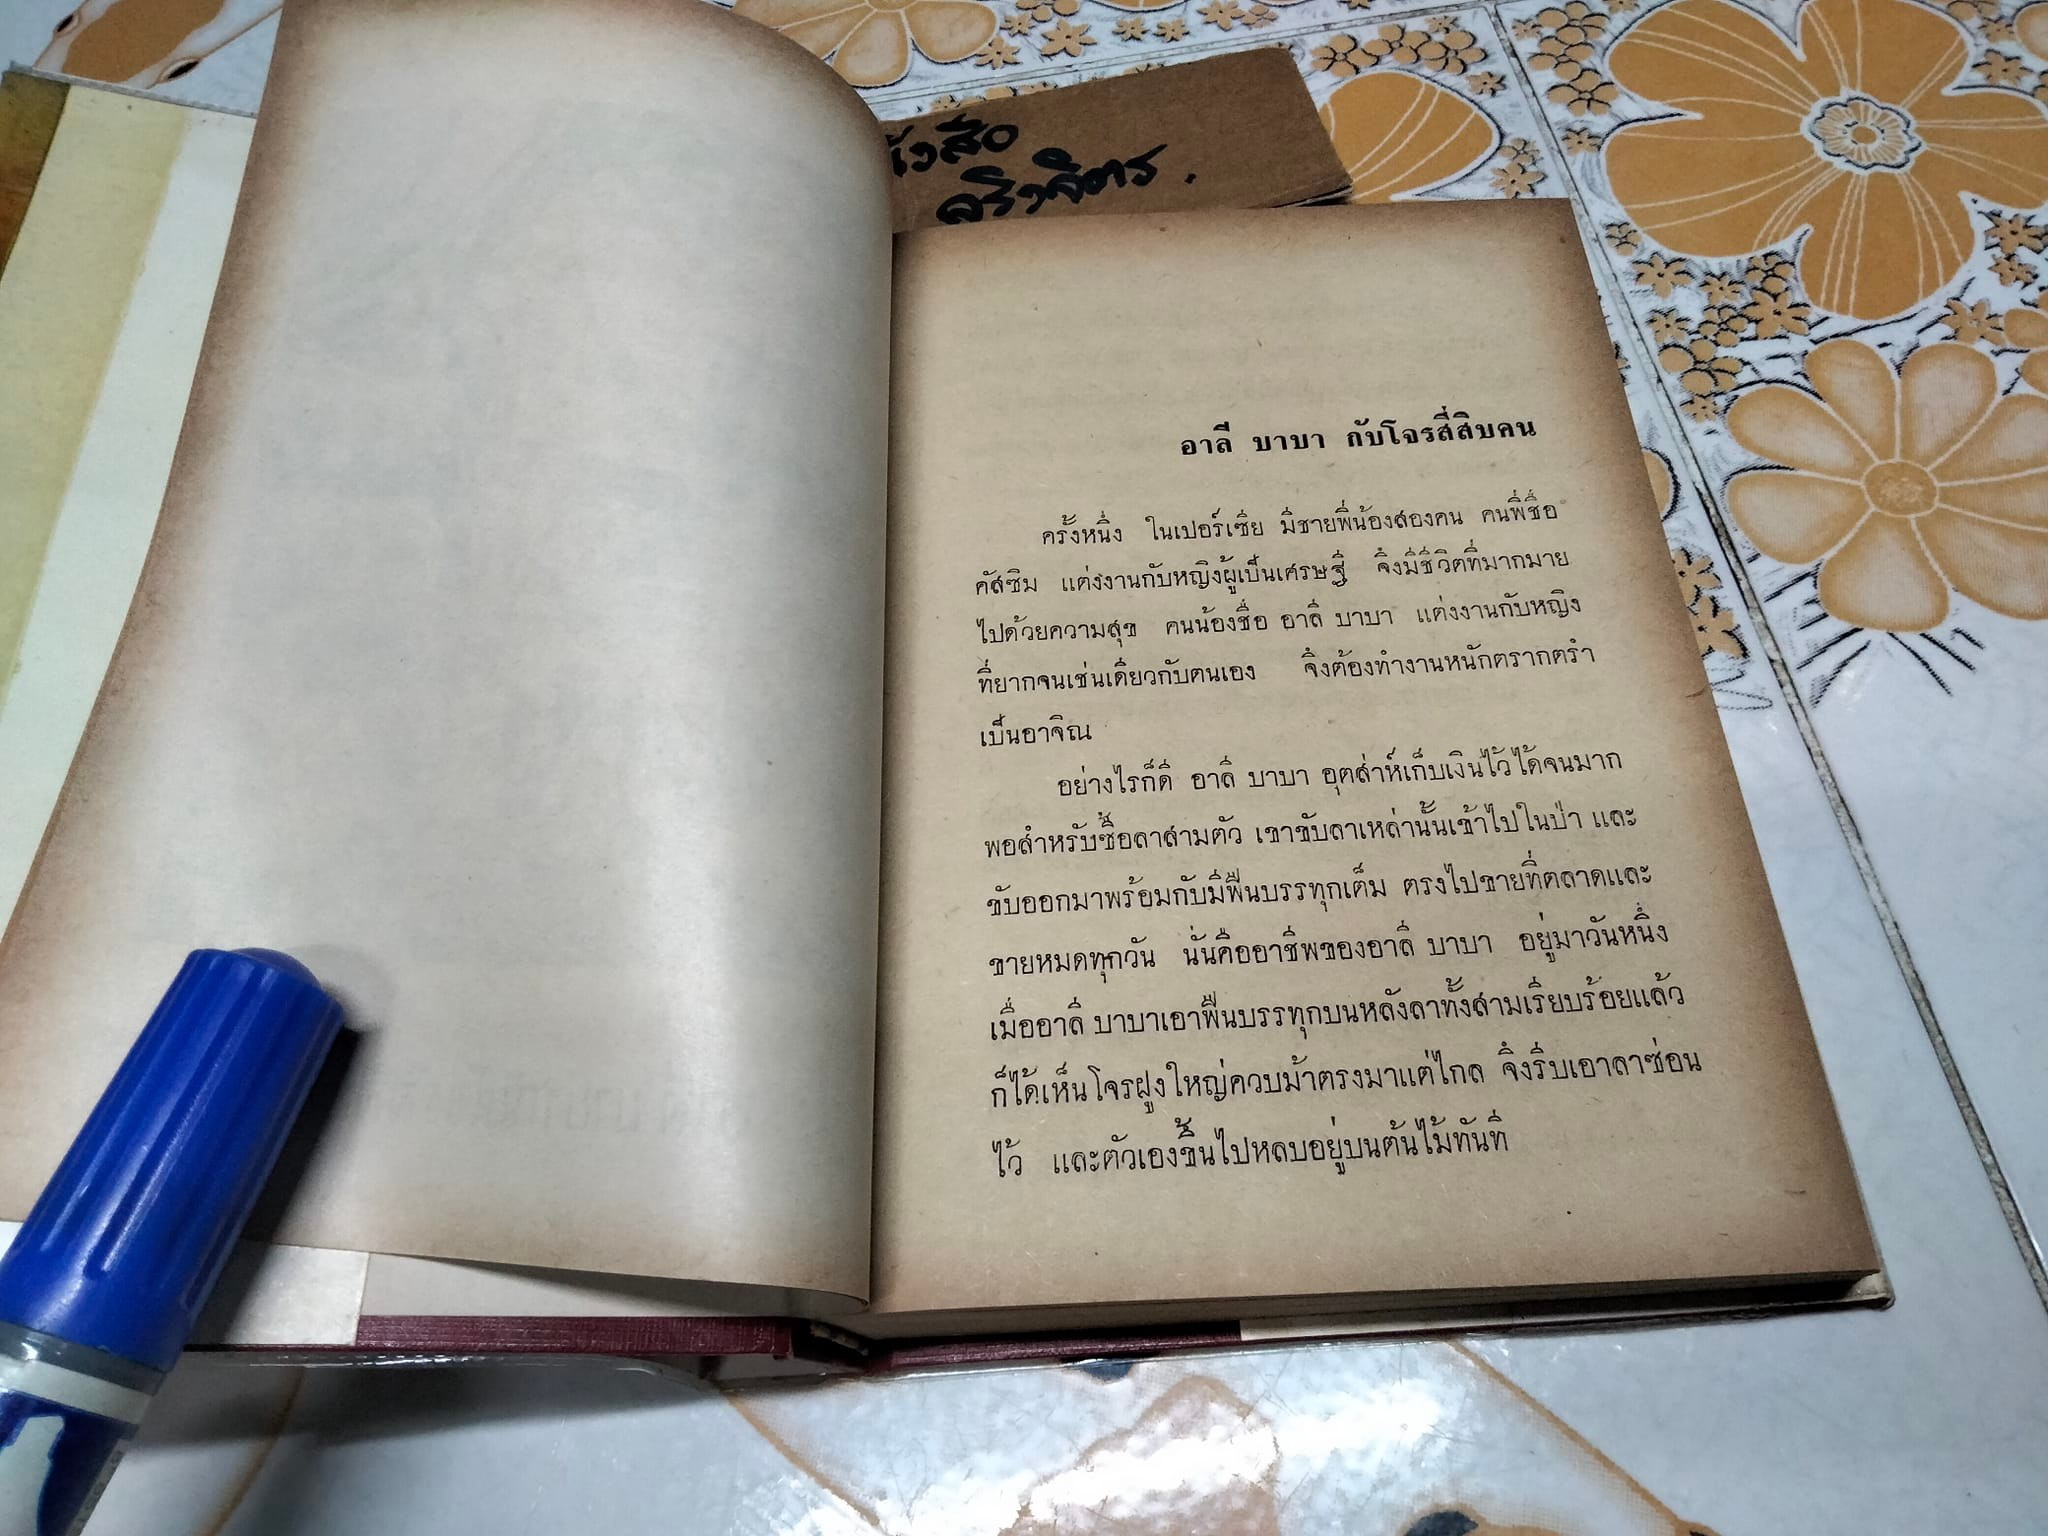 สือ
ศรีวจิตร.
อาลี บาบา กับโจรสี่สิบคน
ครั้งหนึ่ง ในเปอร์เซีย มีชายพี่น้องสองคน คนพี่ชื่อ
คัสซิม แต่งงานกับหญิงผู้เป็นเศรษฐี จึงมีชีวิตที่มากมาย
ไปด้วยความสุข คนน้องชื่อ อาลี บาบา แต่งงานกับหญิง
ที่ยากจนเช่นเดียวกับตนเอง จึงต้องทำงานหนักตรากตรำ
เป็นอาจิณ
อย่างไรก็ดี อาลี บาบา อุตส่าห์เก็บเงินไว้ได้จนมาก
พอสำหรับซื้อลาสามตัว เขาขับลาเหล่านั้นเข้าไปในป่า และ
ขับออกมาพร้อมกับมีฟืนบรรทุกเต็ม ตรงไปขายที่ตลาดและ
ขายหมดทุกวัน นั่นคืออาชีพของอาลี บาบา อยู่มาวันหนึ่ง
เมื่ออาลี บาบาเอาฟืนบรรทุกบนหลังลาทั้งสามเรียบร้อยแล้ว
ก็ได้เห็นโจรฝูงใหญ่ควบม้าตรงมาแต่ไกล จึงรีบเอาลาซ่อน
ไว้ และตัวเองขึ้นไปหลบอยู่บนต้นไม้ทันที